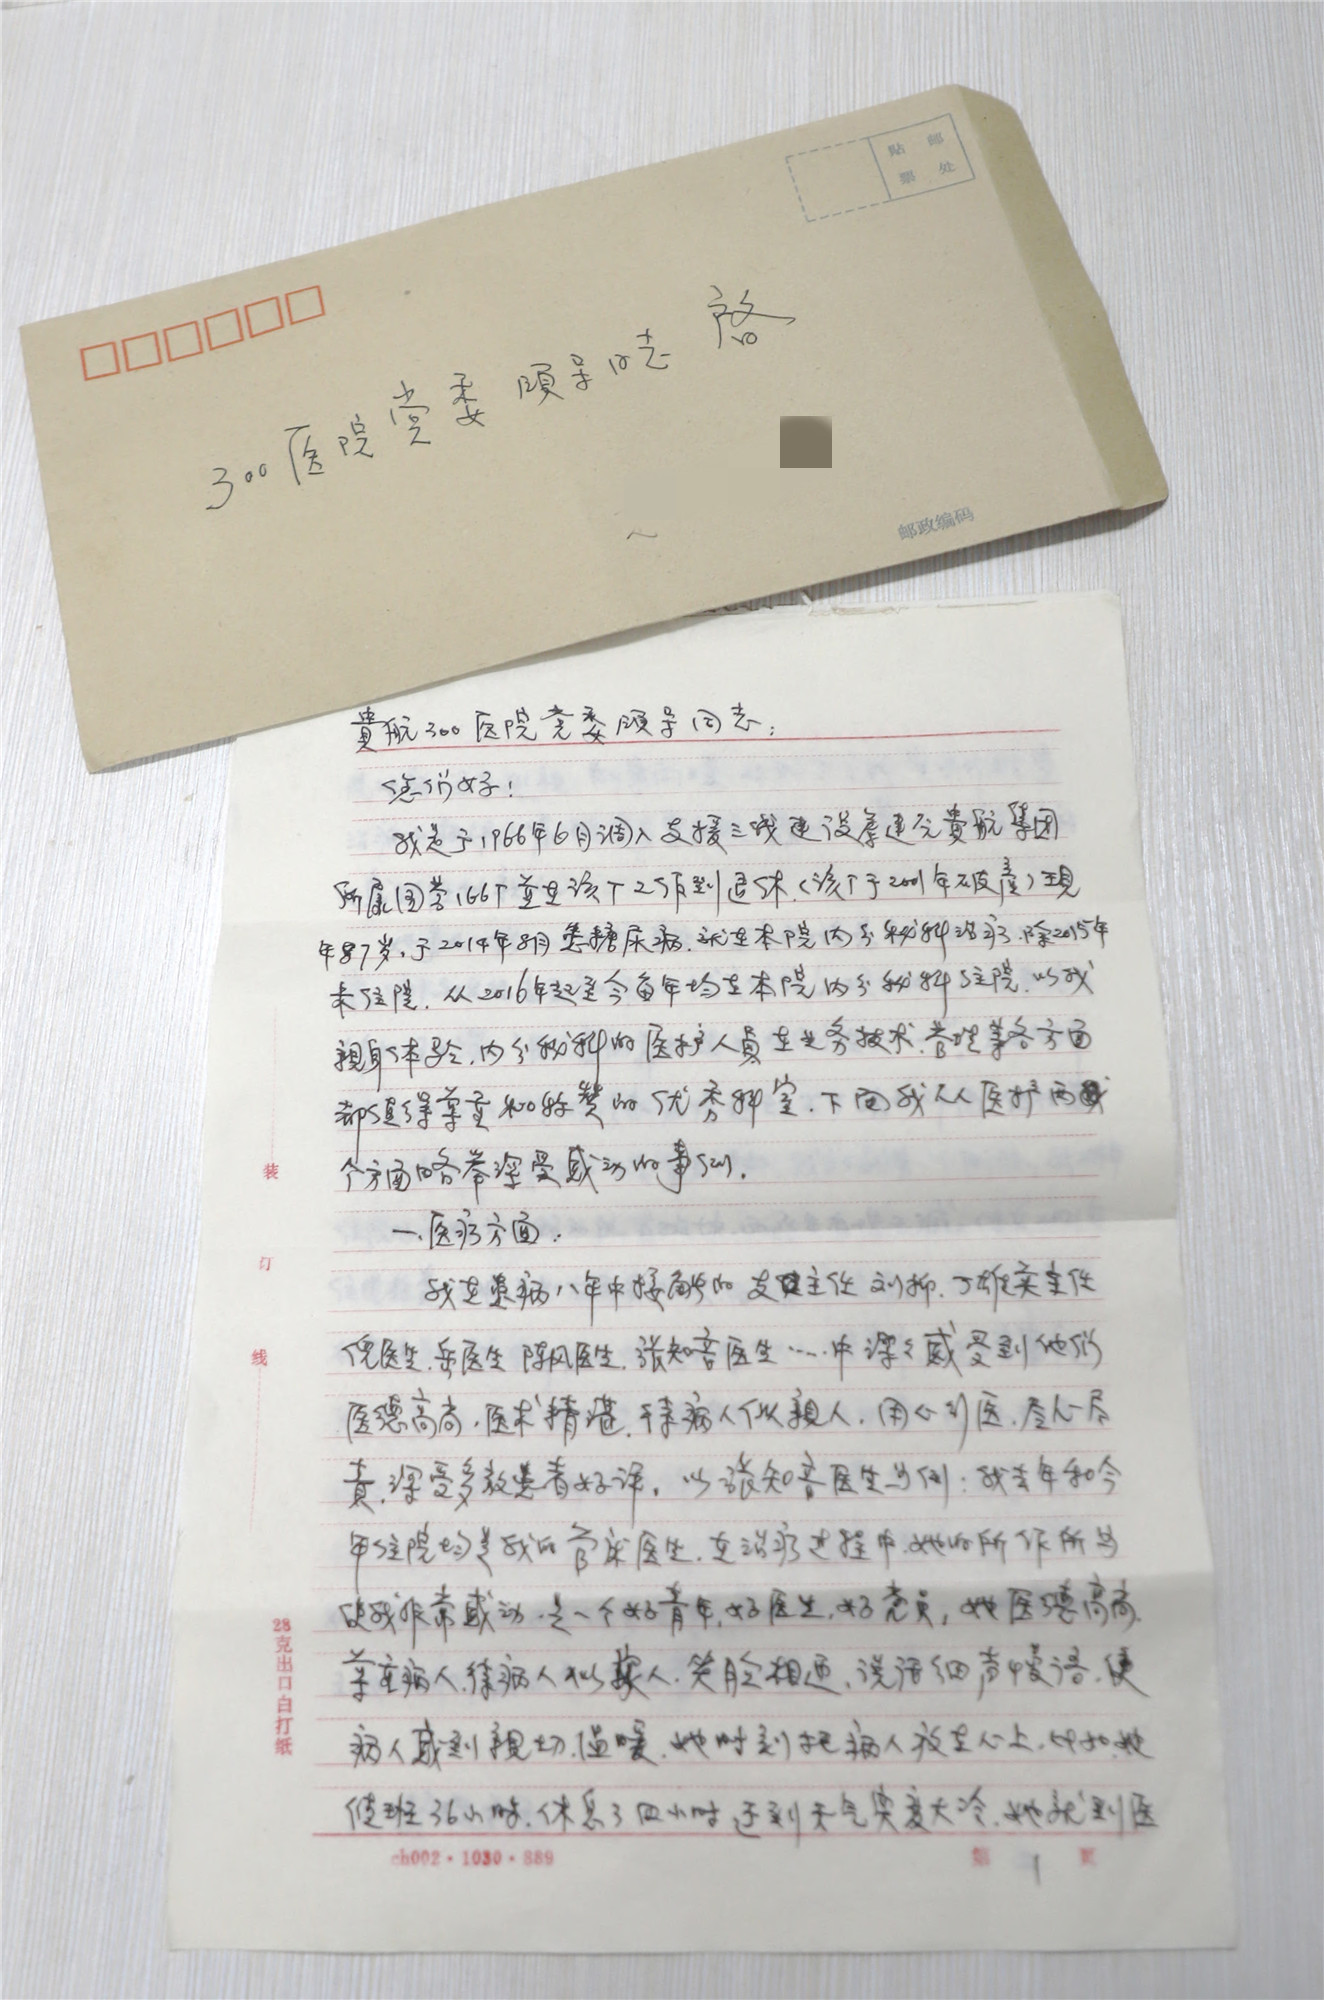 贴 邮
票 处
300医院党委领导同志 启
邮政编码
贵航300医院党委领导同志：
您们好！
我是于1966年6月调入支援三线建设筹建元贵航集团
所属国营166厂并在该厂工作到退休（该厂于2001年破产）现
年87岁，于2014年8月患糖尿病，就在本院内分秘科治疗，除2015年
未住院，从2016年起至今每年均在本院内分秘科住院，以我
親身体验，内分秘科的医护人員在业务技术、管理等各方面
都值得尊重和称赞的优秀科室，下面我从医护两
个方面略举深受感动的事例。
一、医疗方面：
我在患病八年中接触的 主任 刘柳、丁雄英主任
倪医生、岳医生 陈风医生、张知音医生……中深々感受到他们
医德高尚，医术精湛，待病人似親人，用心行医，尽心尽
责，深受多放患者好评，以张知音医生为例：我去年和今
年住院均是我的管床医生，在治疗过程中，她的所作所为
使我非常感动，是一个好青年，好医生，好党员，她医德高尚，
尊重病人，待病人如親人，笑脸相迎，说话细声慢语，使
病人感到親切、温暖，她时刻把病人放在心上，比如，她
值班36小时，休息了四小时 还到天气突变大冷，她就到医
装
订
线
28克出口白打纸
ch002·1030·889
第 1 页